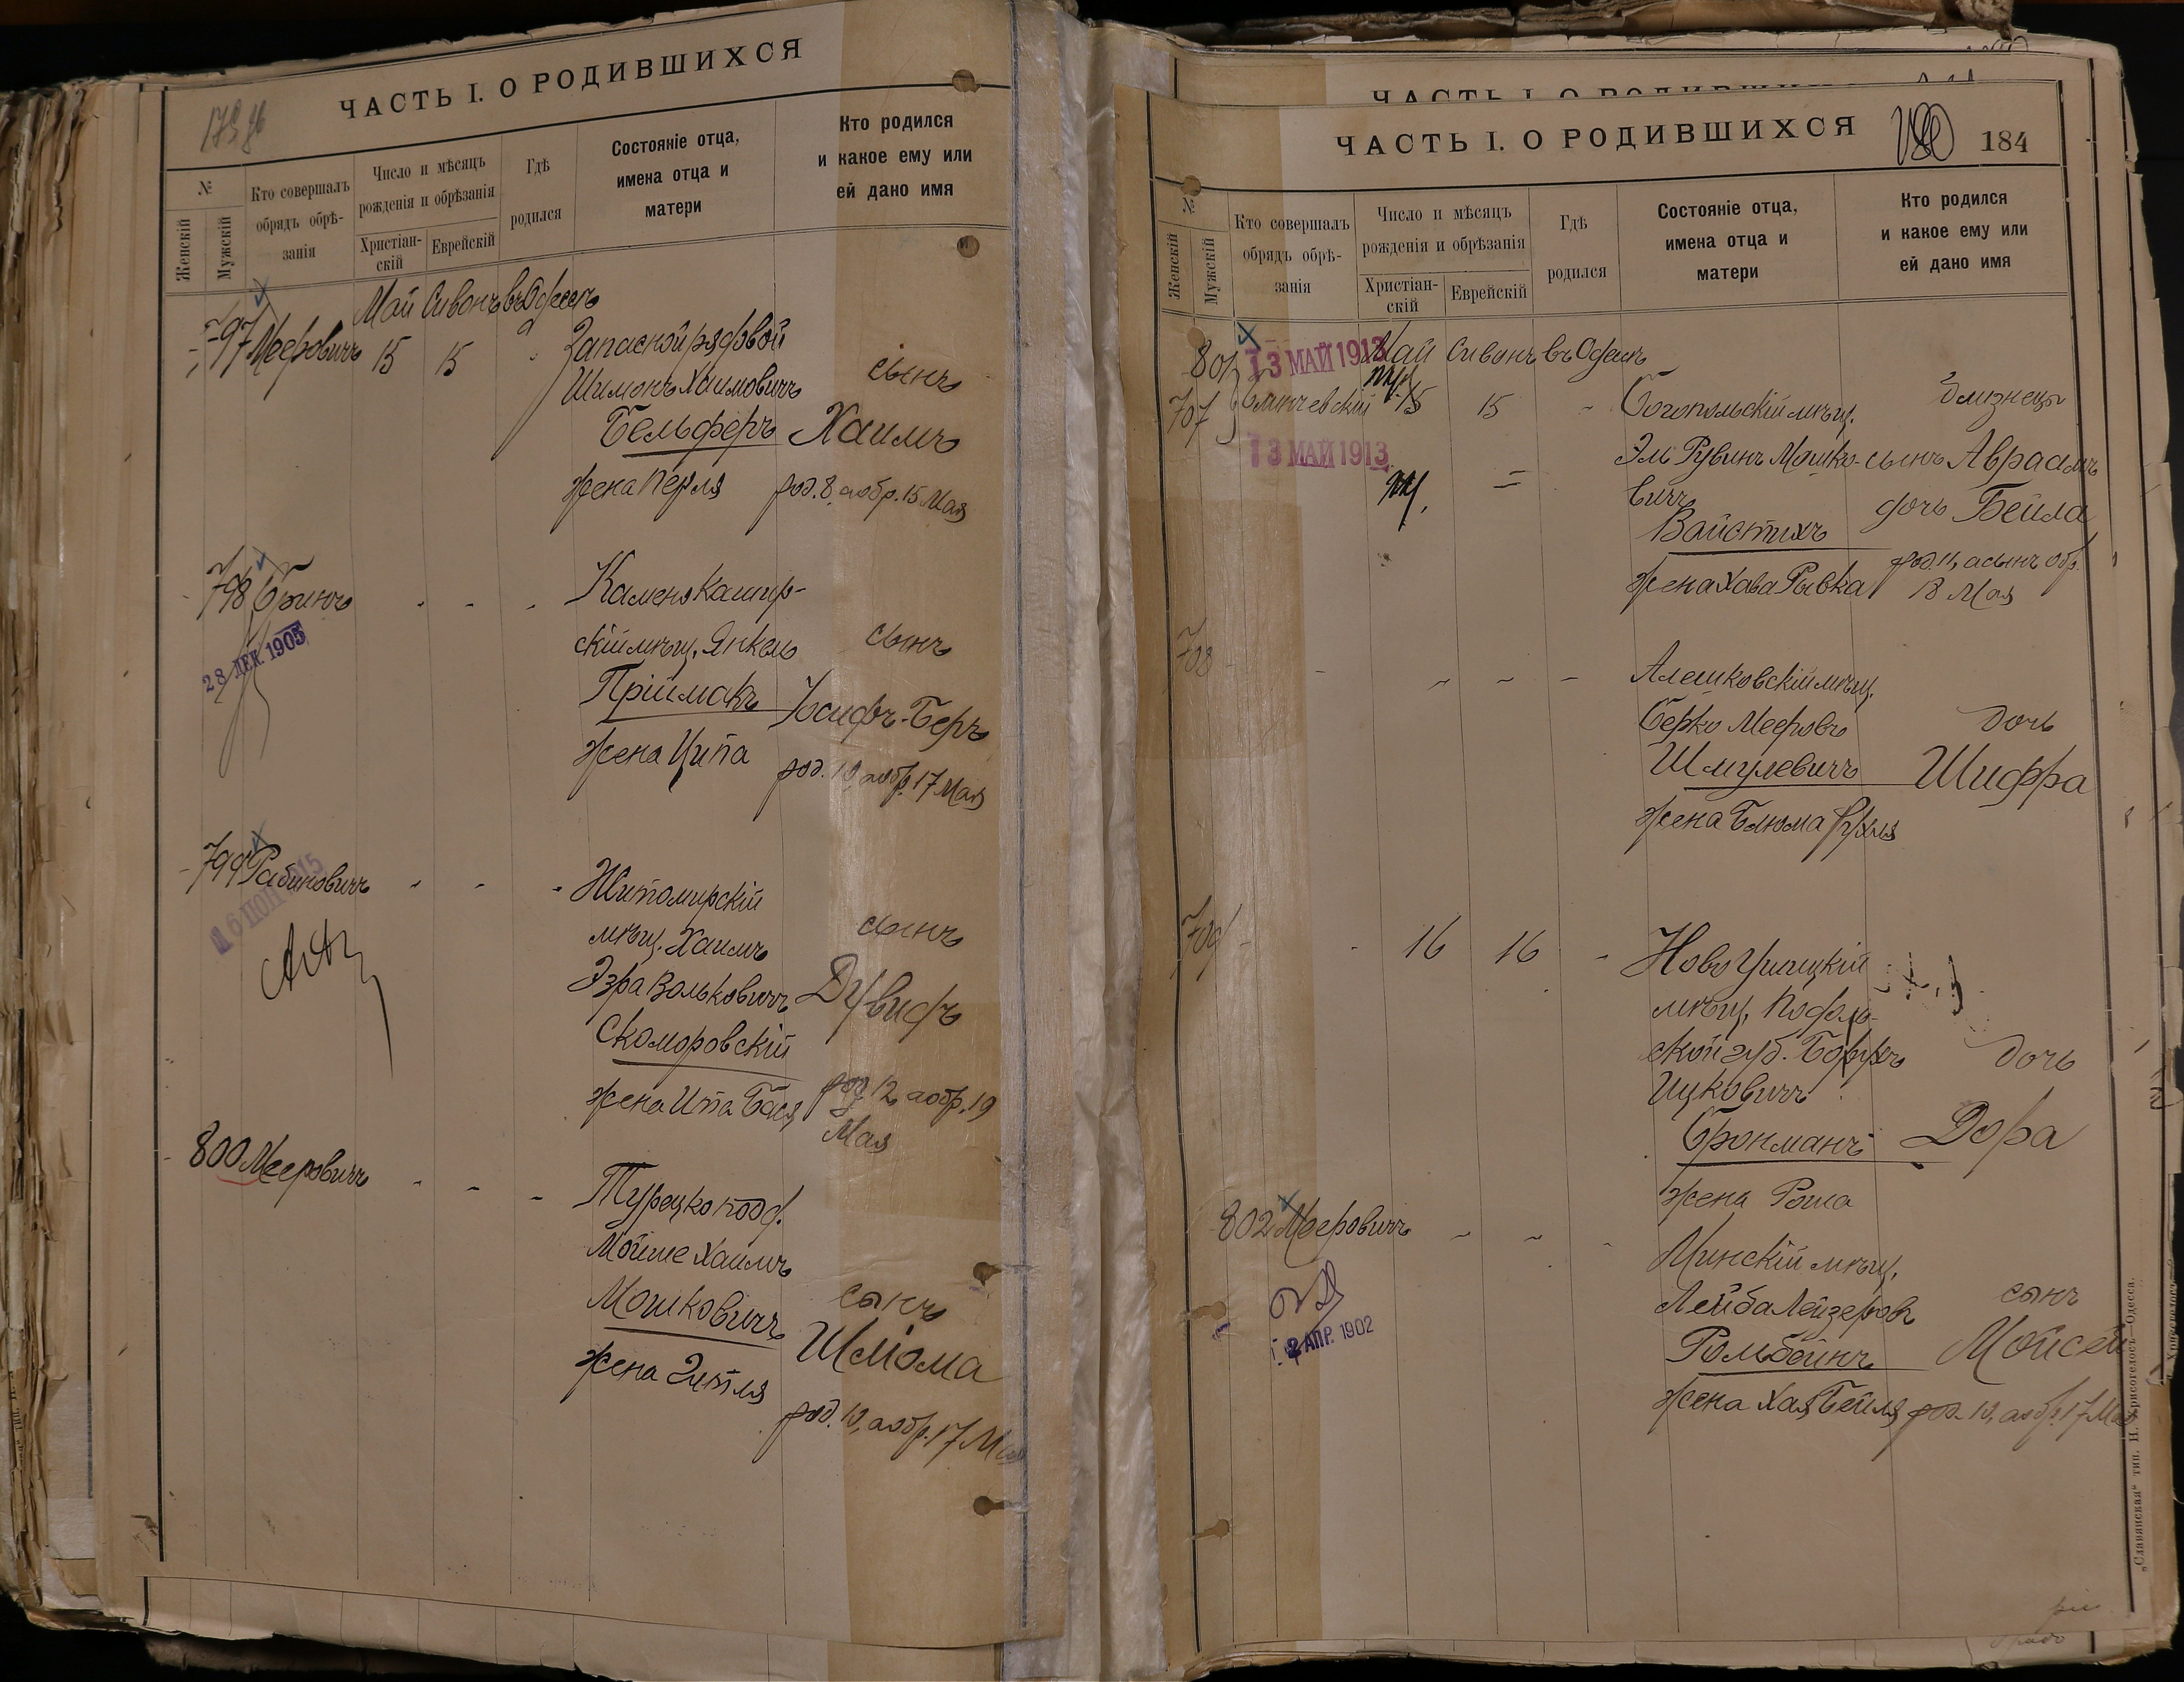 ЧАСТЬ I. О РОДИВШИХСЯ
№
Женскій
Мужскій
Кто совершалъ
обрядъ обрѣ-
занія
Число и мѣсяцъ
рожденія и обрѣзанія
Христіан-
скій
Еврейскій
Гдѣ
родился
Состояніе отца,
имена отца и
матери
Кто родился
и какое ему или
ей дано имя
Май Сивонъ въ Одессѣ
797 Мееровичъ 15 15 Запасной рядовой
Шимонъ Хаимовичъ сынъ
Бельферъ Хаимъ
жена Перля род. 8, а обр. 15 Мая
798 Бринъ Каменокашир-
скій мѣщ. Янкель сынъ
28 ДЕК. 1905
Пріймакъ Іосифъ-Беръ
жена Ципа род. 10, а обр. 17 Мая
799 Рабиновичъ Житомирскій
мѣщ. Хаимъ сынъ
Эзра Вольковичъ Дувидъ
Скоморовскій
жена Ита Бася род. 12, а обр. 19
Мая
800 Мееровичъ Турецко подд.
Мойше Хаимъ
Мошковичъ сынъ
Шлома
жена Зитля
род. 10, а обр. 17 Мая
ЧАСТЬ I. О РОДИВШИХСЯ
ЧАСТЬ I. О РОДИВШИХСЯ 184
№
Женскій
Мужскій
Кто совершалъ
обрядъ обрѣ-
занія
Число и мѣсяцъ
рожденія и обрѣзанія
Христіан-
скій
Еврейскій
Гдѣ
родился
Состояніе отца,
имена отца и
матери
Кто родился
и какое ему или
ей дано имя
801 13 МАЙ 1913 Май Сивонъ въ Одессѣ
707 15 15 Богопольскій мѣщ. близнецы
13 МАЙ 1913
Эль Рувинъ Мошко- сынъ Авраамъ
вичъ дочь Бейла
Вайстихъ
жена Хава Рывка род. 11, а сынъ обр.
18 Мая
708 Алешковскій мѣщ.
Берко Мееровъ дочь
Шмулевичъ Шифра
жена Блюма Рухля
709 16 16 Ново Ушицкій
мѣщ. Подоль-
ской губ. дочь
Ицковичъ
Бронманъ Дора
жена Роша
802 Мееровичъ Минскій мѣщ.
Лейба Лейзеровъ сынъ
2 АПР. 1902
Ромбейнъ Мойсей
жена Хая Бейля род. 10, а обр. 17 Мая
„Славянская" тип. Н. Хрисогелосъ—Одесса.